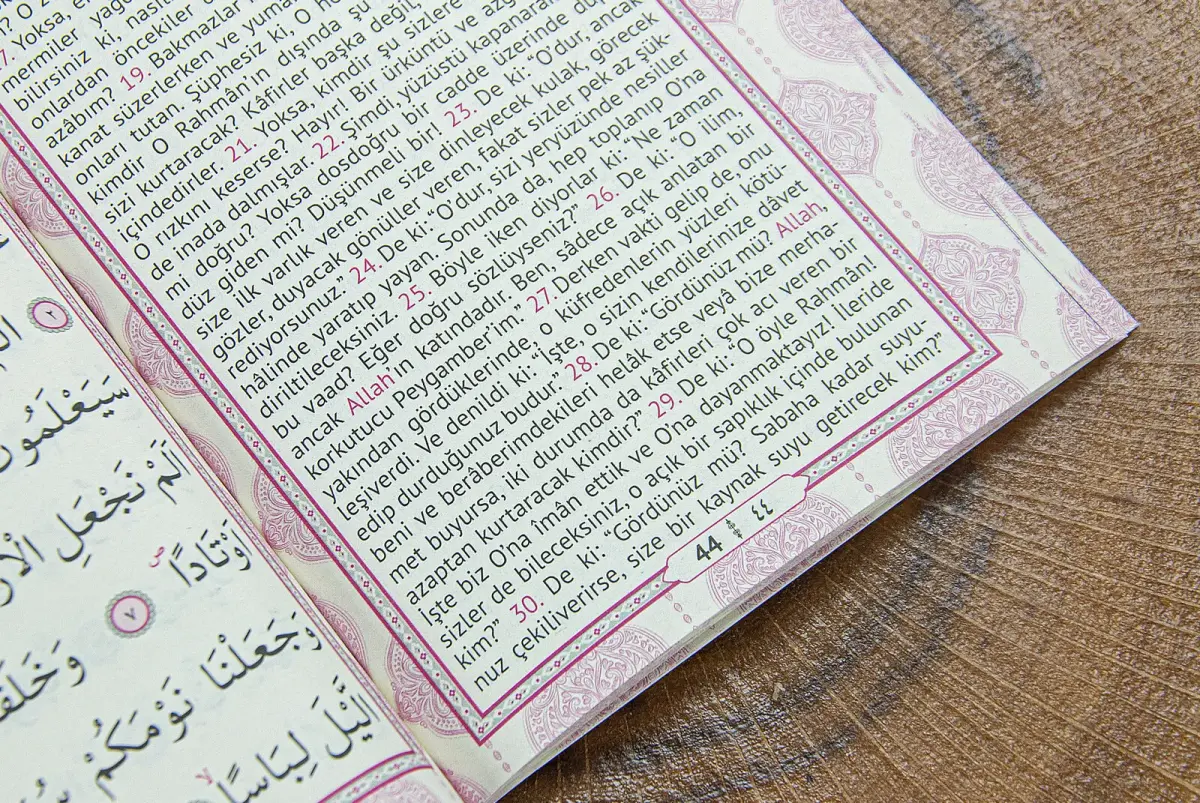 سَيَعْلَمُونَ
اَلَمْ نَجْعَلِ
اَوْتَادًا ٧
وَجَعَلْنَا نَوْمَكُمْ
الَّيْلَ لِبَاسًا
Yoksa,
mermiler
bilirsiniz ki,
onlardan öncekiler
azâbım? 19. Bakmazlar
kanat süzerlerken ve
onları tutan. Şüphesiz ki, O
kimdir O Rahmân'ın dışında şu
sizi kurtaracak? Kâfirler başka değil,
içindedirler. 21. Yoksa, kimdir, şu sizlere
O rızkını keserse? Hayır! Bir ürküntü ve
de inada dalmışlar. 22. Şimdi, yüzüstü kapanarak
mi doğru? Yoksa dosdoğru bir cadde üzerinde
düz giden mi? Düşünmeli bir! 23. De ki: “O'dur, ancak
size ilk varlık veren ve size dinleyecek kulak, görecek
gözler, duyacak gönüller veren, fakat sizler pek az şük-
rediyorsunuz.” 24. De ki: “O'dur, sizi yeryüzünde nesiller
hâlinde yaratıp yayan. Sonunda da, hep toplanıp O'na
diriltileceksiniz. 25. Böyle iken diyorlar ki: “Ne zaman
bu vaad? Eğer doğru sözlüyseniz?” 26. De ki: “O ilim,
ancak Allah'ın katındadır. Ben, sâdece açık anlatan bir
korkutucu Peygamber'im.” 27. Derken vakti gelip de, onu
yakından gördüklerinde, o küfredenlerin yüzleri kötü-
leşiverdi. Ve denildi ki: “İşte, o sizin kendilerinize dâvet
edip durduğunuz budur.” 28. De ki: “Gördünüz mü? Allah,
beni ve berâberimdekileri helâk etse veyâ bize merha-
met buyursa, iki durumda da kâfirleri çok acı veren bir
azaptan kurtaracak kimdir?” 29. De ki: “O öyle Rahmân!
İşte biz O'na îmân ettik ve O'na dayanmaktayız! İleride
sizler de bileceksiniz, o açık bir sapıklık içinde bulunan
kim?” 30. De ki: “Gördünüz mü? Sabaha kadar suyu-
nuz çekiliverirse, size bir kaynak suyu getirecek kim?”
44 ٤٤